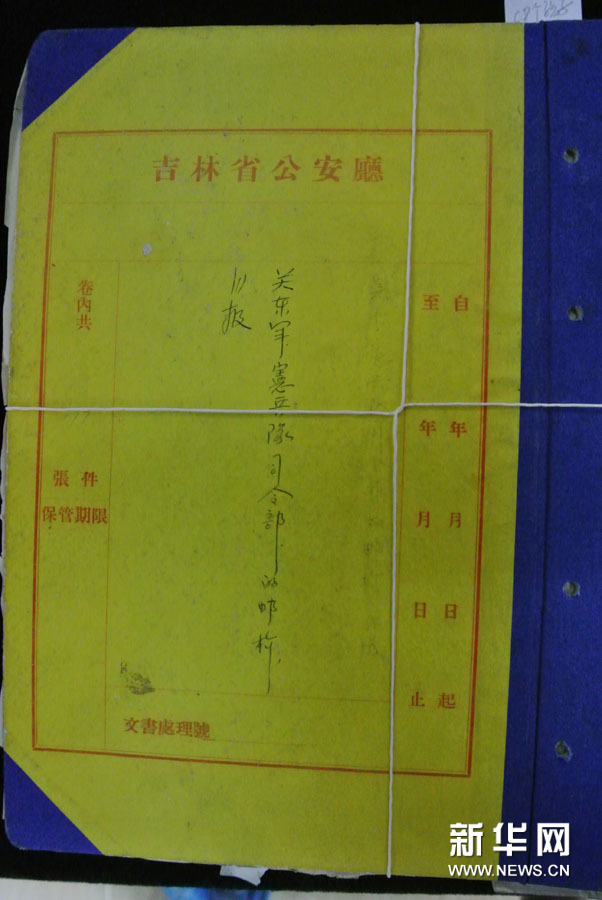 吉林省公安廳
自 年 月 日 起
至 年 月 日 止
关东军憲兵隊司令部的邮检
月报
卷內共
張件
保管期限
文書處理號
新华网
WWW.NEWS.CN